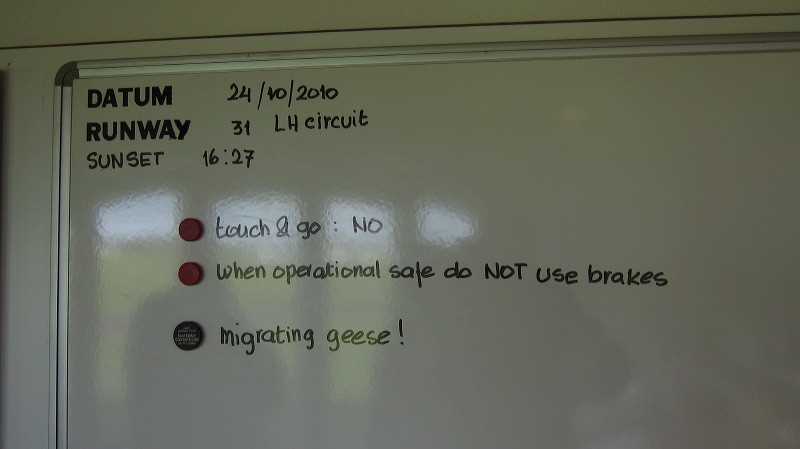 DATUM 24/10/2010
RUNWAY 31 LH circuit
SUNSET 16:27
touch & go : NO
when operational safe do NOT use brakes
migrating geese!